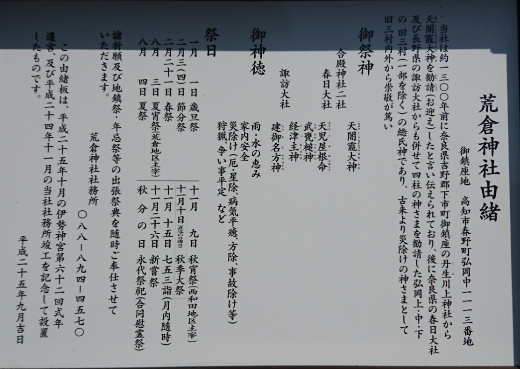 荒倉神社由緒
御鎮座地　高知市春野町弘岡中一一一三番地
当社は約一三〇〇年前に奈良県吉野郡下市町御鎮座の丹生川上神社から
天闇龗大神を勧請(お迎え)したと言い伝えられており、後に奈良県の春日大社
及び長野県の諏訪大社からも併せて四柱の神さまを勧請した弘岡上・中・下
の旧三村(一部を除く)の総氏神であり、古来より災除けの神さまとして
旧三村内外から崇敬が篤い
御祭神
天闇龗大神
合殿神社二社
春日大社
天児屋根命
武甕槌神
経津主神
諏訪大社
建御名方神
御神徳
雨・水の恵み
家内安全
災除け(厄・星除、病気平癒、方除、事故除け等)
狩猟、争い事平定　など
祭日
一月　一日　歳旦祭
二月　三(四)日　節分祭
二月二十一日　春祭
八月　三日　夏宵祭(荒倉地区主宰)
八月　四日　夏祭
十一月　九日　秋宵祭(西和田地区主宰)
十一月　十日　秋季大祭
十一月　十五日　七五三詣(月内随時)
十一月二十六日　新嘗祭
秋分の日　永代祭祀(合同慰霊祭)
諸祈願及び地鎮祭・年忌祭等の出張祭典を随時ご奉仕させて
いただきます。
荒倉神社社務所
〇八八―八九四―四五七〇
この由緒板は、平成二十五年十月の伊勢神宮第六十二回式年
遷宮、及び平成二十四年十一月の当社社務所竣工を記念して設置
したものです。
平成二十五年九月吉日